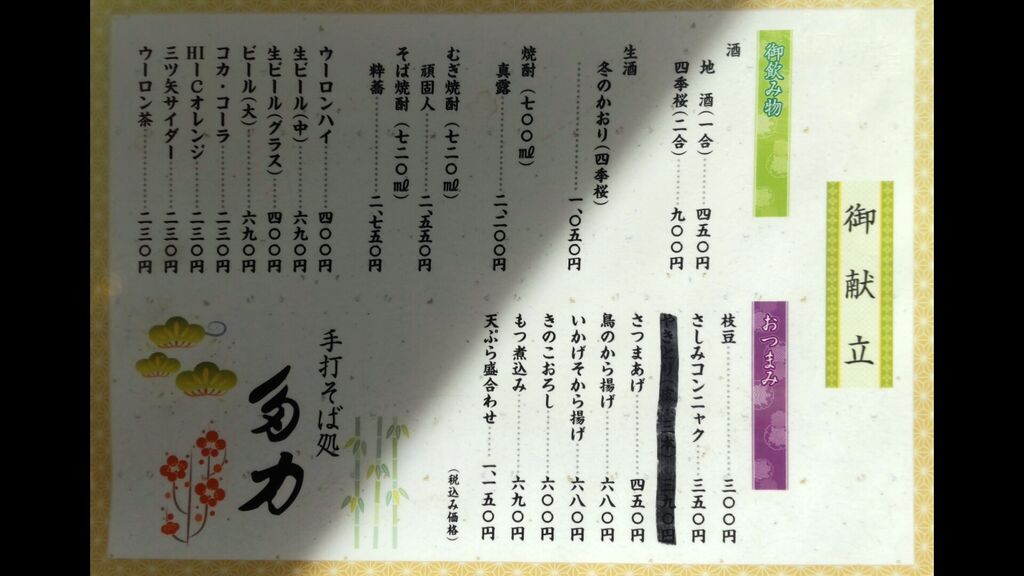 御献立
御飲み物
酒
地 酒（一合）……四五〇円
四季桜（二合）……九〇〇円
生酒
冬のかおり（四季桜）
……一、〇五〇円
焼酎（七〇〇㎖）
真露……二、二〇〇円
むぎ焼酎（七二〇㎖）
頑固人……二、五五〇円
そば焼酎（七二〇㎖）
粋蕎……二、七五〇円
ウーロンハイ……四〇〇円
生ビール（中）……六九〇円
生ビール（グラス）……四〇〇円
ビール（大）……六九〇円
コカ・コーラ……二三〇円
HI－Cオレンジ……二三〇円
三ツ矢サイダー……二三〇円
ウーロン茶……二三〇円
おつまみ
枝豆……三〇〇円
さしみコンニャク……三五〇円
さつまあげ……四五〇円
鳥のから揚げ……六八〇円
いかげそから揚げ……六八〇円
きのこおろし……六〇〇円
もつ煮込み……六九〇円
天ぷら盛合わせ……一、一五〇円
（税込み価格）
手打そば処
多力